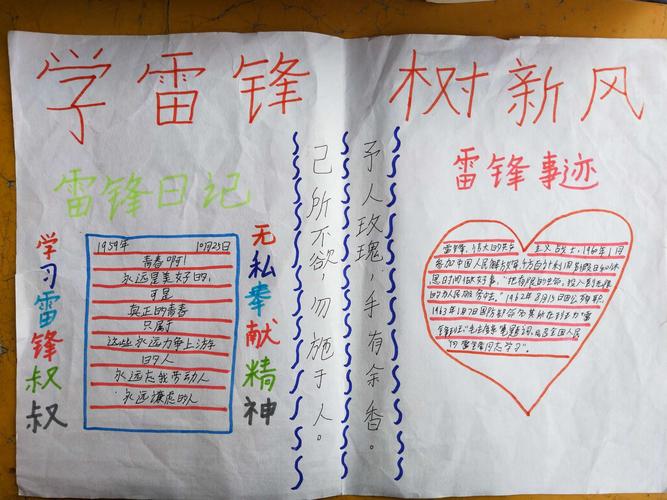 学雷锋 树新风
雷锋日记
学习雷锋叔叔
1959年 10月25日
青春啊!
永远是美好的,
可是
真正的青春
只属于
这些永远力争上游
的人
永远忘我劳动人
永远谦虚的人
无私奉献精神
己所不欲，勿施于人。
予人玫瑰，手有余香。
雷锋事迹
雷锋,伟大的共产主义战士,1960年1月
参加中国人民解放军,
息时间做好事,"把有限的生命,投入到无限
的为人民服务去。"1962年8月15日因公殉职,
1963年1月7日国防部命名其所在班为"雷
锋班"
"向雷锋同志学习"。